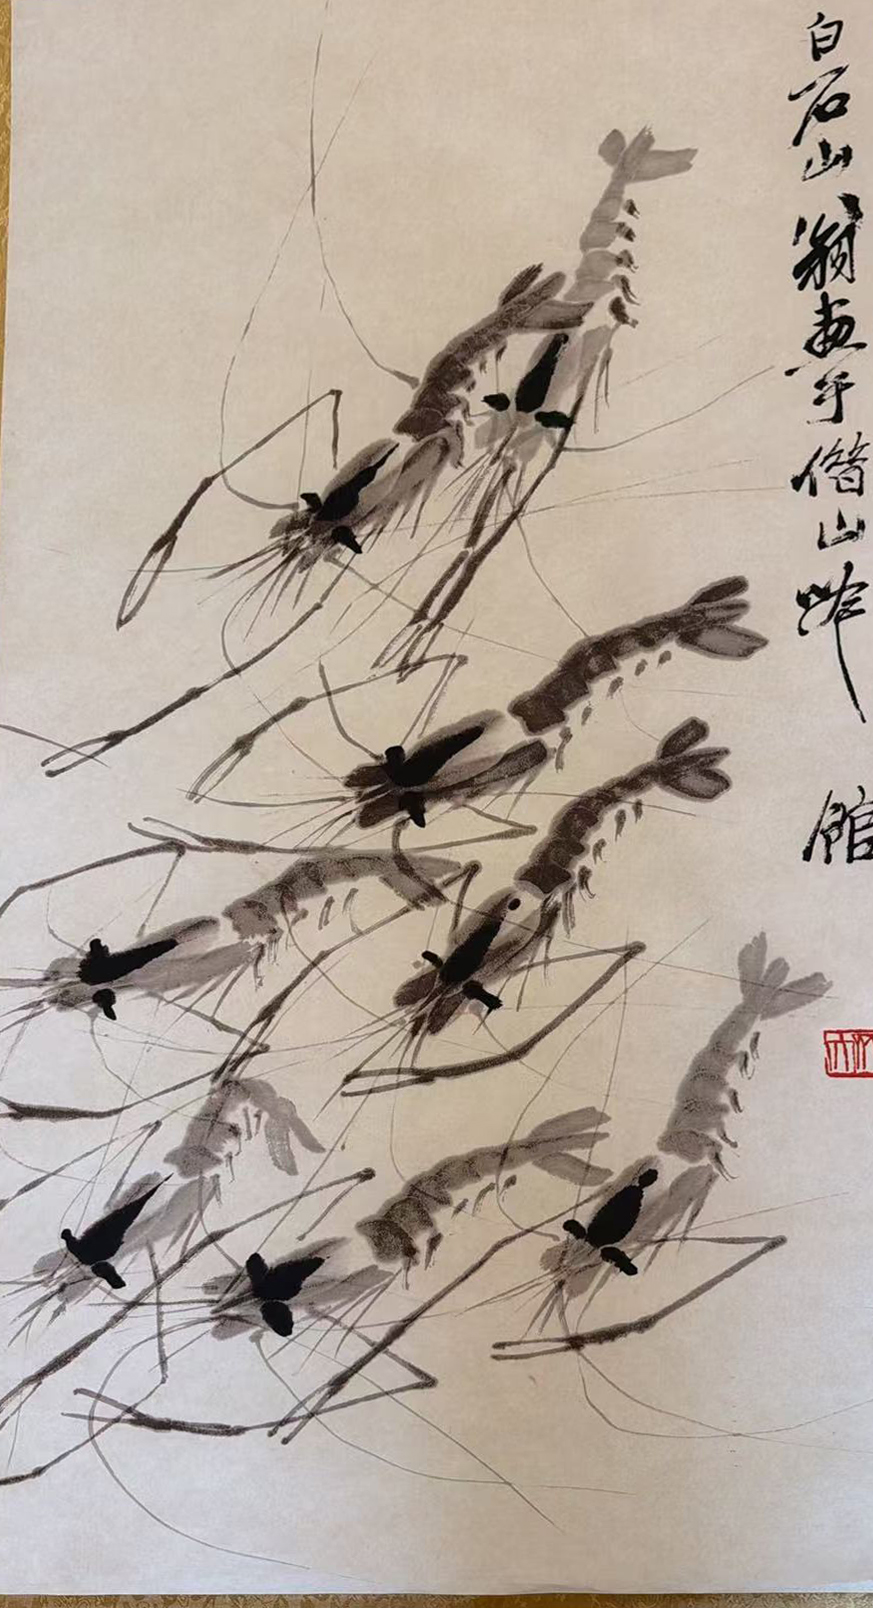 白石山翁画于借山吟馆